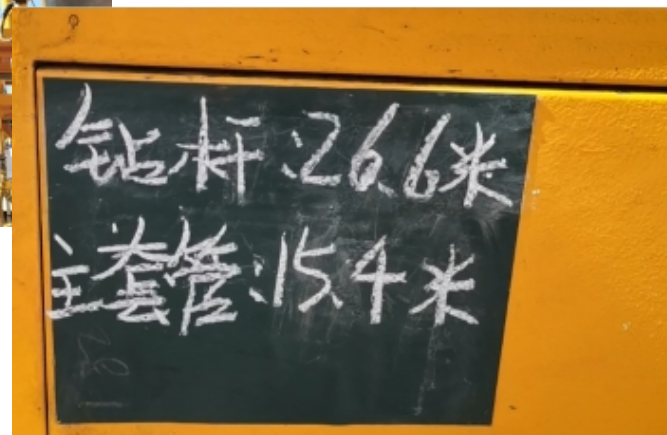 钻杆:26.6米
主套管:15.4米